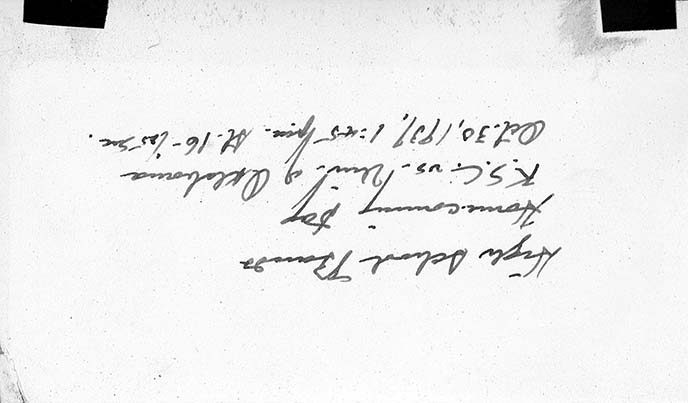 High School Bands
Homecoming Day
K.S.C. vs. Univ. of Oklahoma
Oct. 30, 1937, 1:45 p.m. f1. 16 - 1/25 sec.